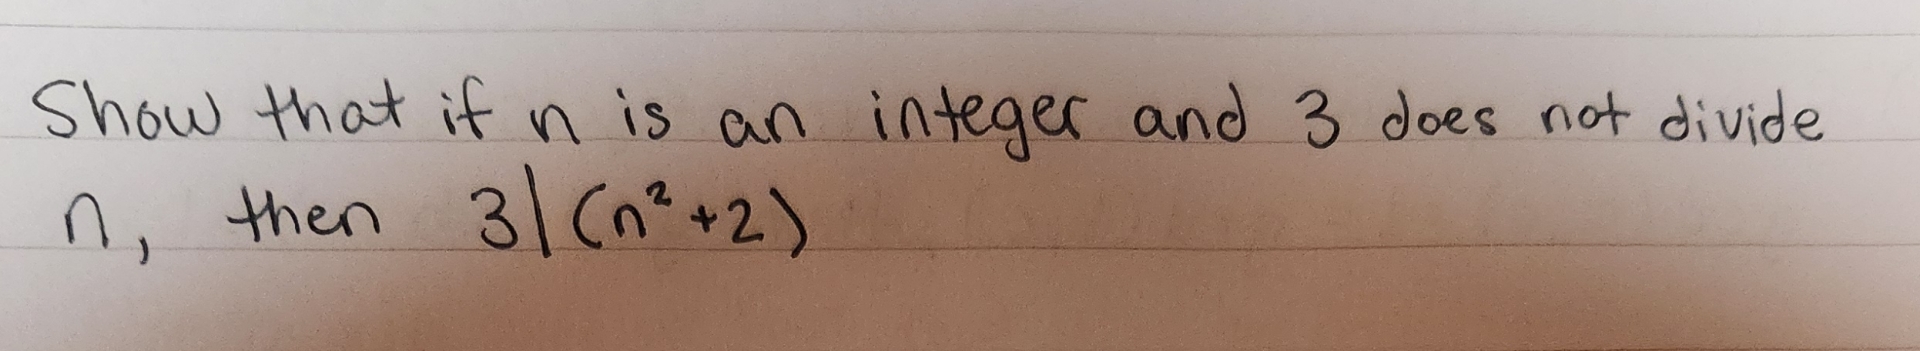 Show that if n is an integer and 3 does not divide
n, then 3|(n²+2)